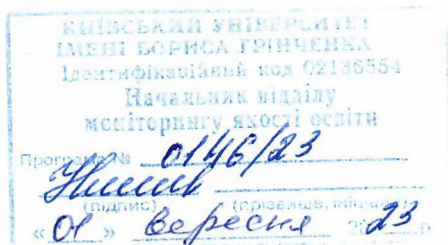 КИЇВСЬКИЙ УНІВЕРСИТЕТ
ІМЕНІ БОРИСА ГРІНЧЕНКА
Ідентифікаційний код 02136554
Начальник відділу
моніторингу якості освіти
Програма № 0146/23
(підпис) (прізвище, ініціали)
« 01 » вересня 2023 р